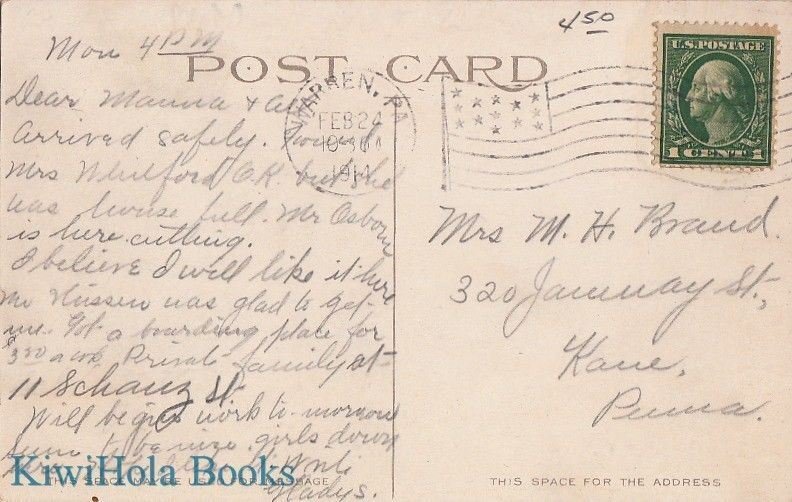 4 50
Mon 4 PM
POST CARD
U.S. POSTAGE
1 CENT 1
WARREN, PA.
FEB 24
10-30 A
191
Dear Mamma & all
Arrived safely. Found
Mrs Whilford O.K. but she
was house full. Mr Osborn
is here cutting.
I believe I will like it here
Mr was glad to get
me. Got a boarding place for
$3.50 a wk. Private family at
11 Schanz St.
Will begin work to-morrow
seem to be nice girls down
here.
Gladys.
Mrs M. H. Brand.
320 Janway St.,
Kane,
Penna.
KiwiHola Books
SPACE MAY BE USED FOR MESSAGE
THIS SPACE FOR THE ADDRESS